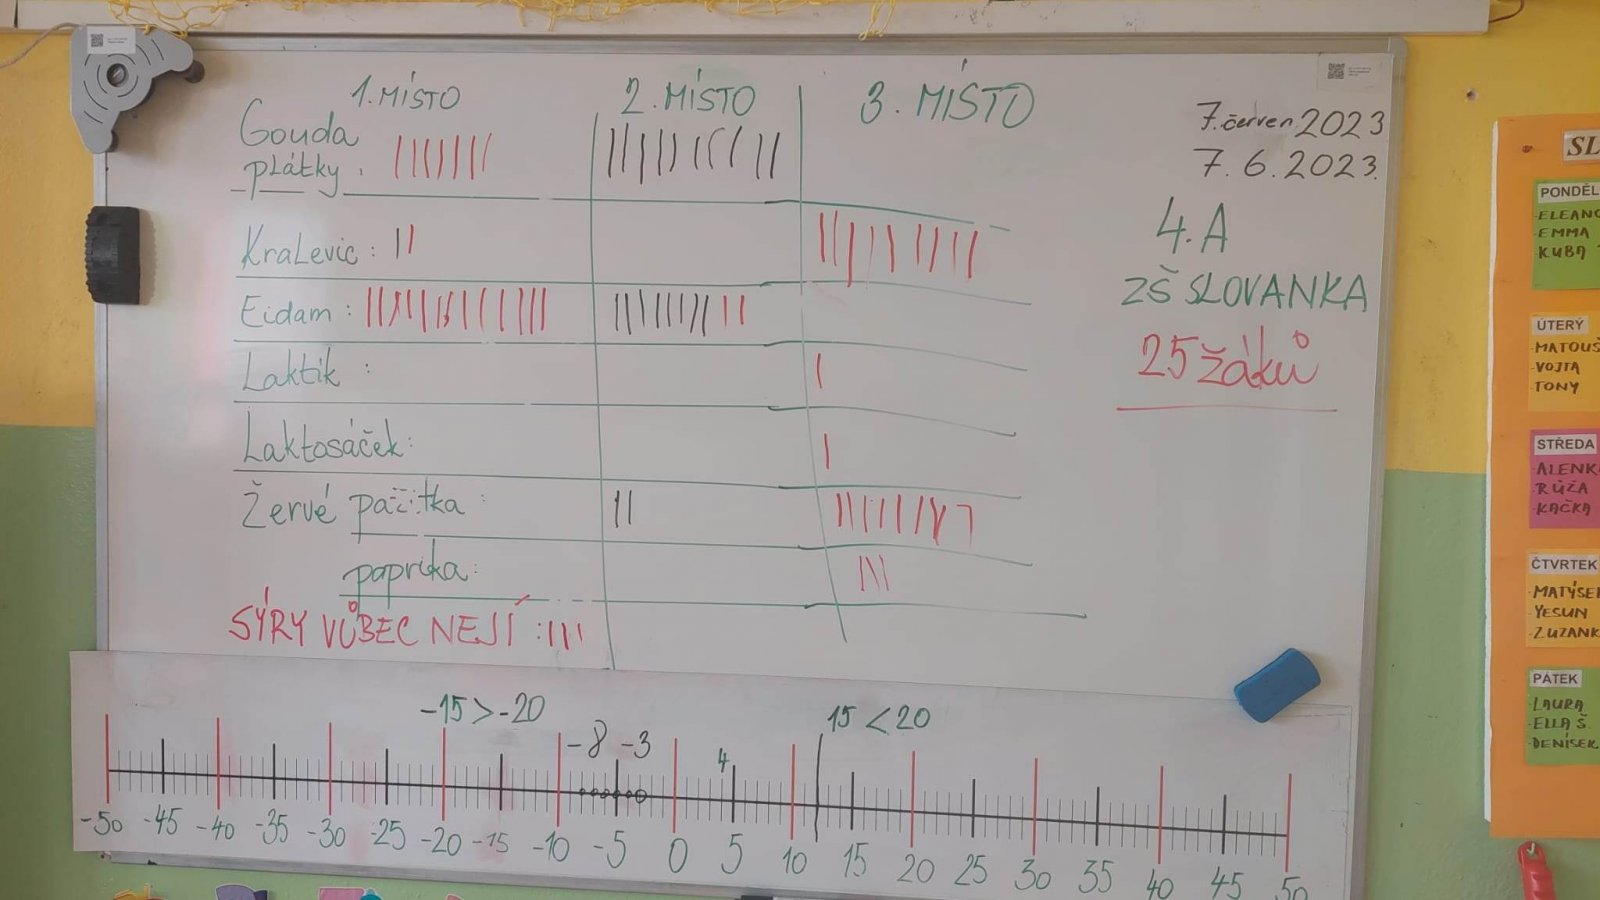 1. MÍSTO 2. MÍSTO 3. MÍSTO
Gouda
plátky :
KraLevic :
Eidam :
Laktik :
Laktosáček:
Žervé pažitka :
paprika:
SÝRY VŮBEC NEJÍ :
7. červen 2023
7. 6. 2023.
4. A
ZŠ SLOVANKA
25 žáků
-15 > -20 15 < 20
-8 -3 4
-50 -45 -40 -35 -30 -25 -20 -15 -10 -5 0 5 10 15 20 25 30 35 40 45 50
SL
PONDĚL
-ELEANO
-EMMA
-KUBA
ÚTERÝ
-MATOUŠ
-VOJTA
-TONY
STŘEDA
-ALENK
-RŮŽA
-KAČKA
ČTVRTEK
-MATÝSE
-YESUN
-ZUZANK
PÁTEK
-LAURA
-ELLA Š.
-DENÍSEK